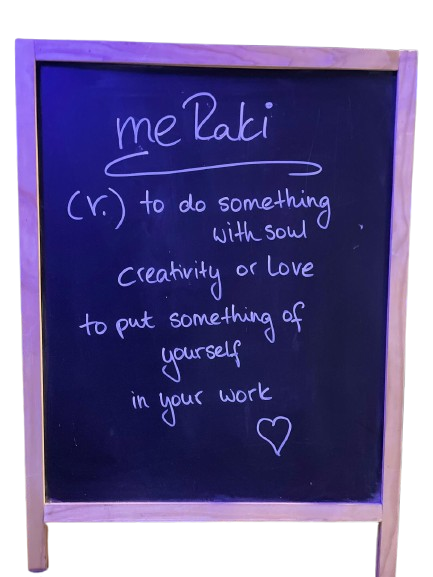 meRaki
(v.) to do something
with soul
creativity or love
to put something of
yourself
in your work